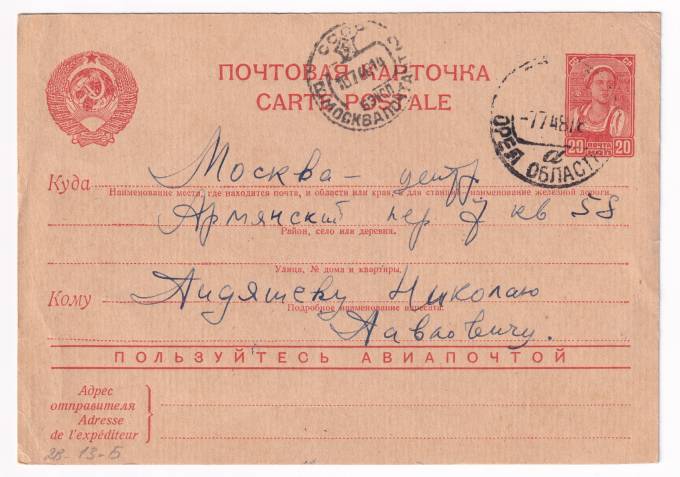 ПОЧТОВАЯ КАРТОЧКА
CARTE POSTALE
20 20
-7 7 48
ОРЕЛ ОБЛАСТ
МОСКВА ПОЧТАМТ
Куда Москва - центр
Наименование места, где находится почта, и области или края, а для станций - наименование железной дороги
Армянский пер кв 58
Район, село или деревня.
Улица, № дома и квартиры.
Кому Николаю
Подробное наименование адресата.
Павловичу.
ПОЛЬЗУЙТЕСЬ АВИАПОЧТОЙ
Адрес
отправителя
Adresse
de l'expéditeur
28-13-Б